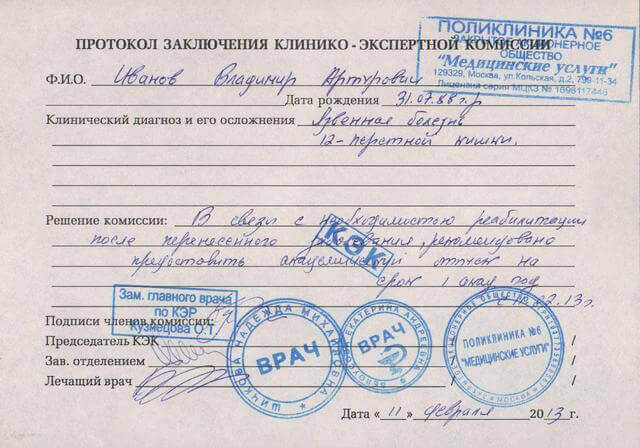 ПОЛИКЛИНИКА №6
ЗАКРЫТОЕ АКЦИОНЕРНОЕ
ОБЩЕСТВО
"Медицинские услуги"
129329, Москва, ул.Кольская, д.2, 799-11-34
Лицензия серия МЦКЗ № 1696117446
ПРОТОКОЛ ЗАКЛЮЧЕНИЯ КЛИНИКО - ЭКСПЕРТНОЙ КОМИССИИ
Ф.И.О. Иванов Владимир Артурович
Дата рождения 31.07.88 г.р
Клинический диагноз и его осложнения Язвенная болезнь
12-перстной кишки.
Решение комиссии: В связи с необходимостью реабилитации
после перенесенного заболевания, рекомендовано
предоставить академический отпуск на
срок 1 акад год
02.13г.
КЭК
Зам. главного врача
по КЭР
Кузнецова О.Т
Подписи членов комиссии:
Председатель КЭК / /
Зав. отделением / /
Лечащий врач / /
НАДЕЖДА МИХАЙЛОВНА
ВРАЧ
ЕКАТЕРИНА АНДРЕЕВНА
ВРАЧ
ПОЛИКЛИНИКА №6
"МЕДИЦИНСКИЕ УСЛУГИ"
МОСКВА
Дата « 11 » февраля 2013 г.